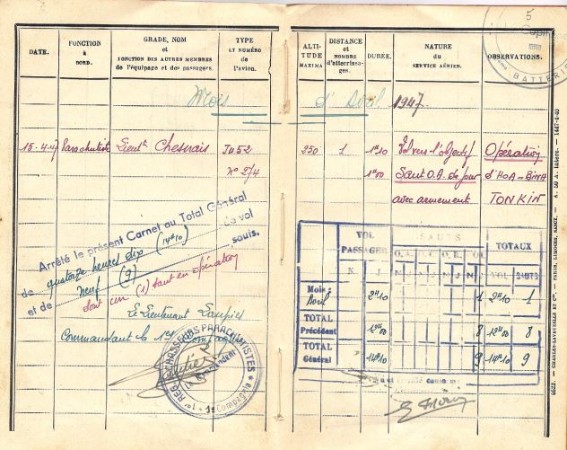 5
BATTERIE
DATE.
FONCTION
A
BORD.
GRADE, NOM
et
FONCTION DES AUTRES MEMBRES
de l'équipage et des passagers.
TYPE
ET NUMÉRO
de l'avion.
ALTI-
TUDE
MAXIMA
DISTANCE
et
NOMBRE
d'atterrissages.
DURÉE.
NATURE
du
SERVICE AÉRIEN.
OBSERVATIONS.
Mois d'Avril 1947.
16.4.47 Parachutiste Lieut^t Chesnais JU52 250 1 1^h10 Vol vers l'objectif Opération
N° 574 1^h00 Saut O.A. de jour d'HOA-BINH
avec armement TONKIN
Arrêté le présent Carnet au Total Général
de quatorze heures dix (14^h10) de vol
et de neuf (9) sauts.
dont un (1) saut en opération
Le Lieutenant
Commandant la 1^re Compagnie
PARACHUTISTES
1^re Compagnie
VOL
PASSAGER
SAUTS
TOTAUX
J. N. O.A. C. O. N J N J N J VOL SAUTS
Mois :
Avril 2^h10 1 2^h10 1
TOTAL
Précédent 12^h00 8 12^h00 8
TOTAL
Général 14^h10 9 14^h10 9